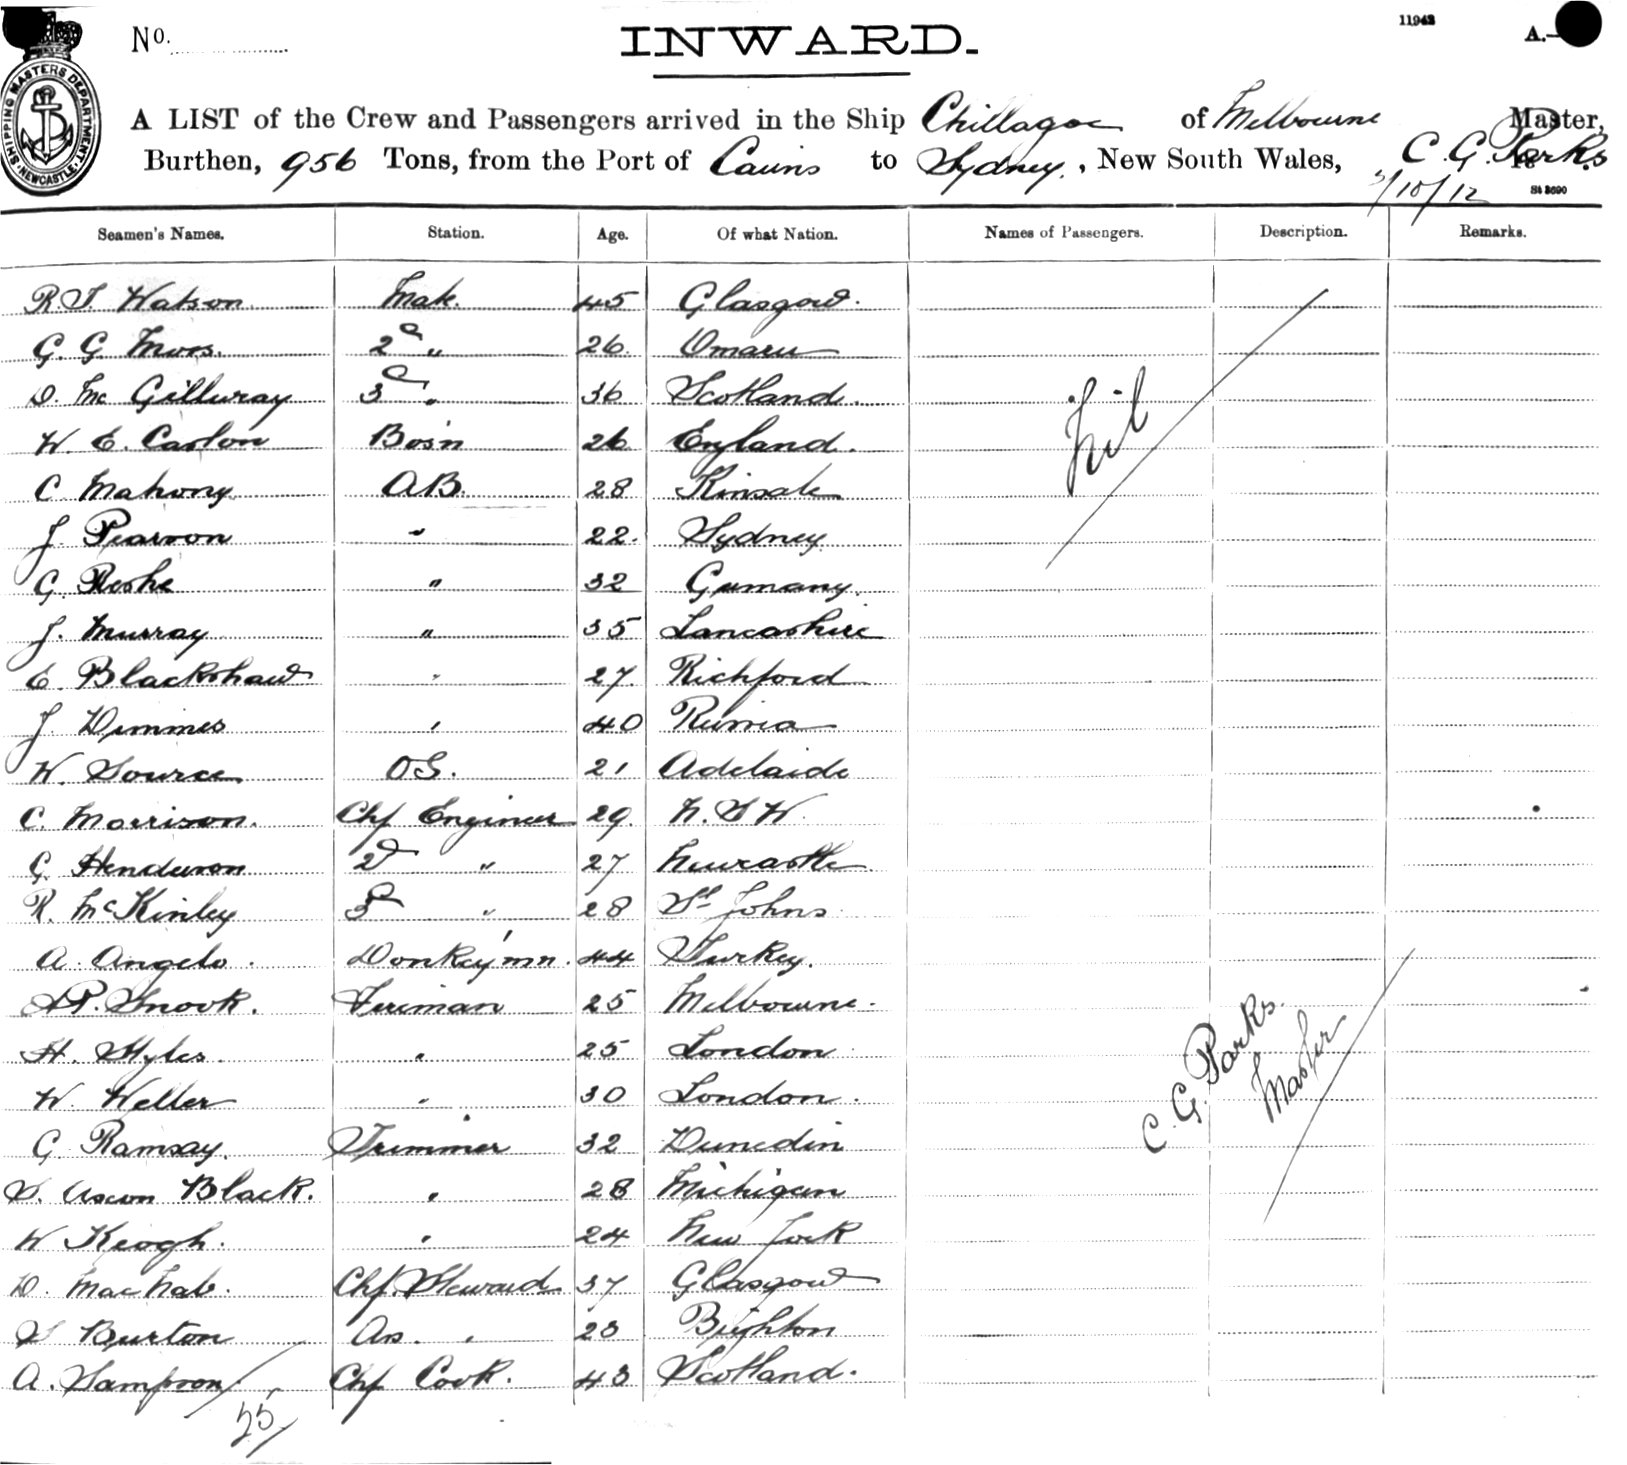 No.
INWARD.
A.—
SHIPPING MASTERS DEPARTMENT NEWCASTLE
A LIST of the Crew and Passengers arrived in the Ship Chillagoe of Melbourne Master,
C. G. Parks
Burthen, 956 Tons, from the Port of Cairns to Sydney, New South Wales, 18
/10/12 St 3690
Seamen's Names. Station. Age. Of what Nation. Names of Passengers. Description. Remarks.
R. J. Watson Mate. 45 Glasgow.
G. G. 2nd " 26 Omaru
D. McGillivray 3rd " 36 Scotland.
W. E. Carlon Bos'n 26 England.
C. Mahony AB. 28 Kinsale
Nil
J. Pearson " 22. Sydney
G. " 32 Germany.
J. Murray " 35 Lancashire
E. Blackshaw " 27. Richford
J. Dimmes " 40 Russia
W. Source OS. 21 Adelaide
C. Morrison. Chf Engineer 29. N. S W.
G. Henderson 2d " 27 Newcastle
R. McKinley 3d " 28 St Johns
A. Angelo. Donkey'mn. 44 Turkey.
Snook. Fireman 25 Melbourne.
H. Styles. " 25 London
W. Weller " 30 London.
C. G. Parks.
Master
G. Ramsay. Trimmer 32 Dunedin
Black. " 28 Michigan
W Keogh. " 24 New York
D. MacNab. Chf. Steward 37 Glasgow
S Burton As. " 23 Brighton
A. Sampson Chf Cook. 43 Scotland.
25